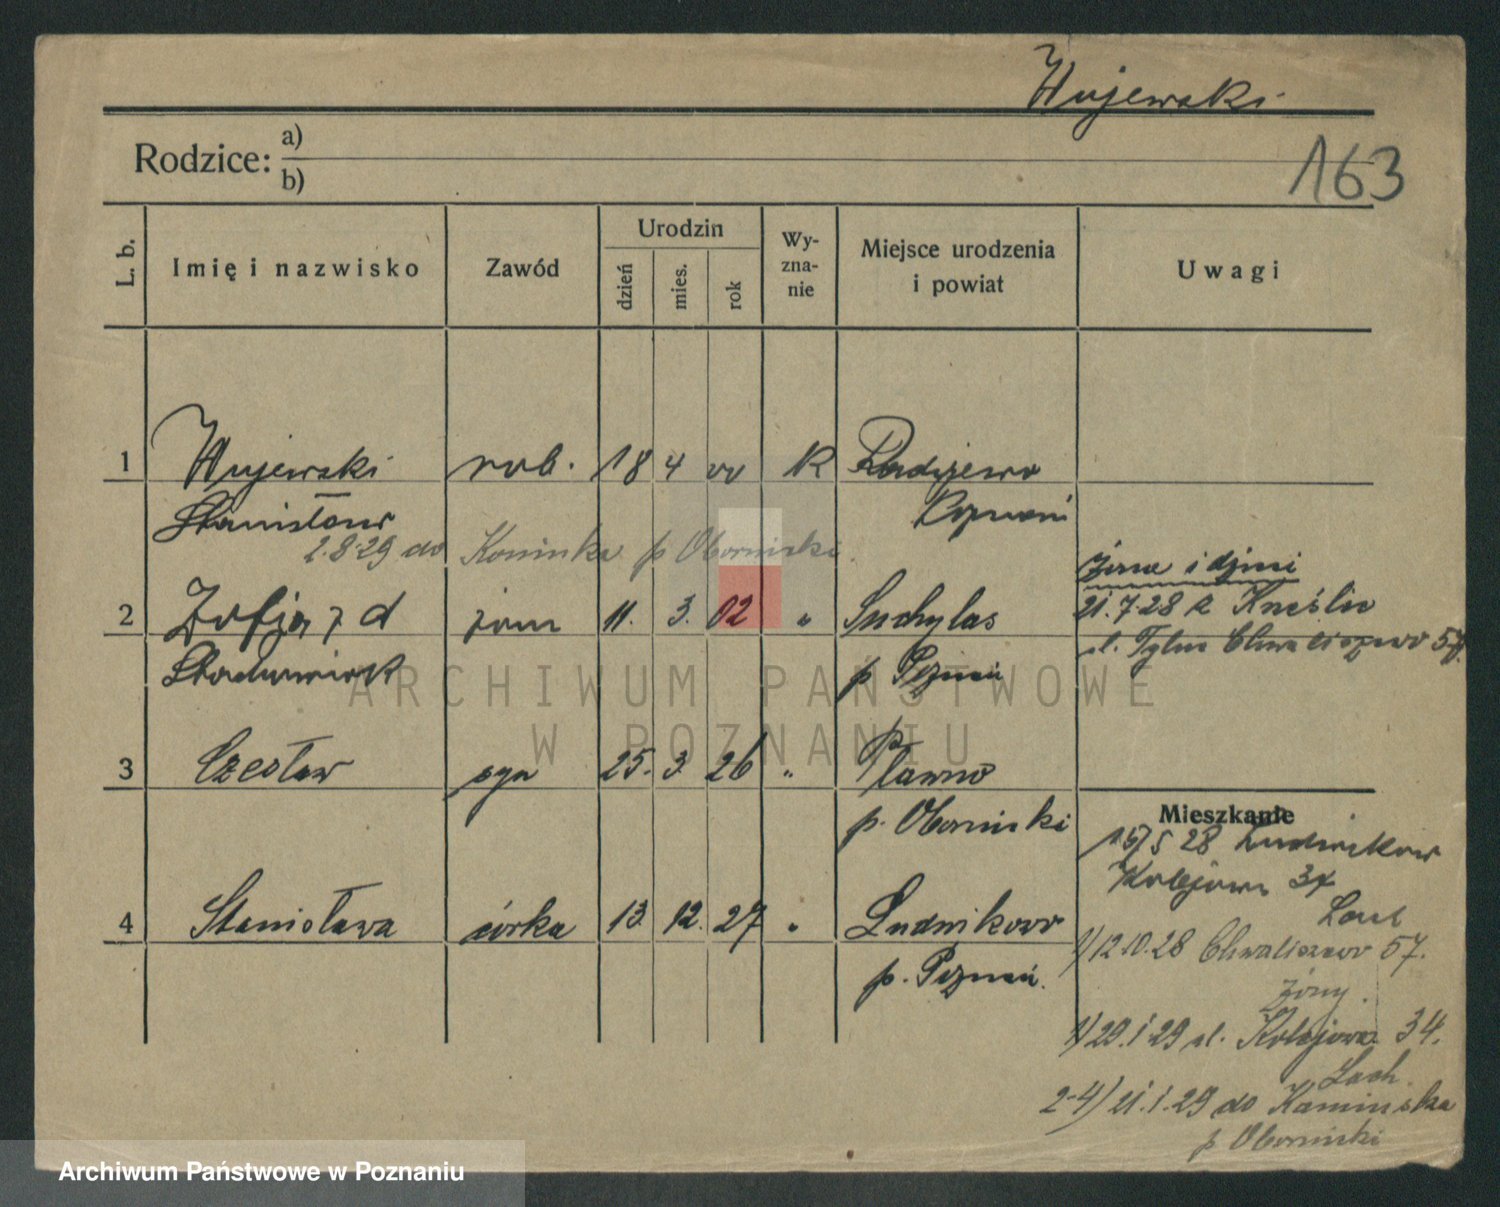 Wujewski
163
Rodzice: a)
b)
L. b. Imię i nazwisko Zawód Urodzin dzień mies. rok Wy-zna-nie Miejsce urodzenia i powiat Uwagi
1 Wujewski rob. 18 4 00 R
Stanisław Poznań
2.8.29 do p Obornicki
2 Zofja z d żona 11. 3. 02 " Suchylas
p Poznań
Żona i dzieci
21.7.28
ul. Tylne Chwaliszewo 57.
3 Czesław syn 25. 3. 26 " Pławno
p. Obornicki
Mieszkanie
15/5 28 Ludwikowo
Kolejowa 34
4 Stanisława córka 13. 12. 27 " Ludwikowo
p. Poznań.
1) 12.10.28 Chwaliszewo 57.
żony.
1) 29.1.29 ul. Kolejowa 34.
Lach.
2-4) 21.1.29 do Kaminska
p Obornicki
ARCHIWUM PAŃSTWOWE
W POZNANIU
Archiwum Państwowe w Poznaniu